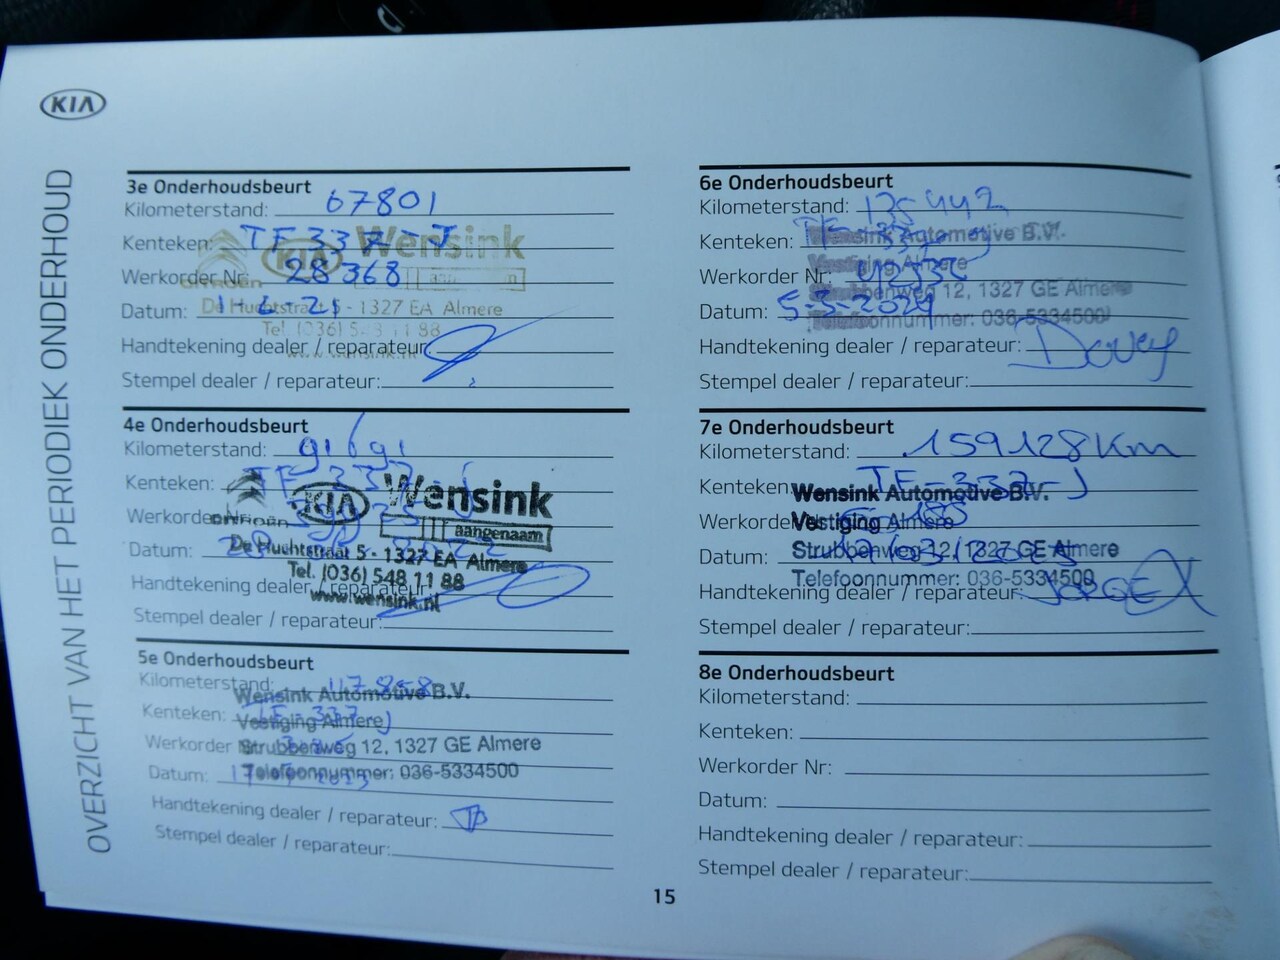 KIA
OVERZICHT VAN HET PERIODIEK ONDERHOUD
3e Onderhoudsbeurt
Kilometerstand: 67801
Kenteken: TF337-J
Werkorder Nr: 28368
Datum: 1-6-21
Handtekening dealer / reparateur:
Stempel dealer / reparateur:
CITROËN KIA Wensink
De Huchtstraat 5 - 1327 EA Almere
Tel. (036) 548 11 88
www.wensink.nl
4e Onderhoudsbeurt
Kilometerstand: 91691
Kenteken: TF-337-J
Werkorder Nr:
Datum:
Handtekening dealer / reparateur:
Stempel dealer / reparateur:
CITROËN KIA Wensink
aangenaam
De Huchtstraat 5 - 1327 EA Almere
Tel. (036) 548 11 88
www.wensink.nl
5e Onderhoudsbeurt
Kilometerstand:
Kenteken: TF-337-J
Werkorder Nr:
Datum:
Handtekening dealer / reparateur:
Stempel dealer / reparateur:
Wensink Automotive B.V.
Vestiging Almere
Strubbenweg 12, 1327 GE Almere
Telefoonnummer: 036-5334500
6e Onderhoudsbeurt
Kilometerstand: 135442
Kenteken:
Werkorder Nr:
Datum: 5-3-2024
Handtekening dealer / reparateur: Davey
Stempel dealer / reparateur:
Wensink Automotive B.V.
Vestiging Almere
Strubbenweg 12, 1327 GE Almere
Telefoonnummer: 036-5334500
7e Onderhoudsbeurt
Kilometerstand: 159128Km
Kenteken: TF-337-J
Werkorder Nr:
Datum:
Handtekening dealer / reparateur:
Stempel dealer / reparateur:
Wensink Automotive B.V.
Vestiging Almere
Strubbenweg 12, 1327 GE Almere
Telefoonnummer: 036-5334500
8e Onderhoudsbeurt
Kilometerstand:
Kenteken:
Werkorder Nr:
Datum:
Handtekening dealer / reparateur:
Stempel dealer / reparateur:
15